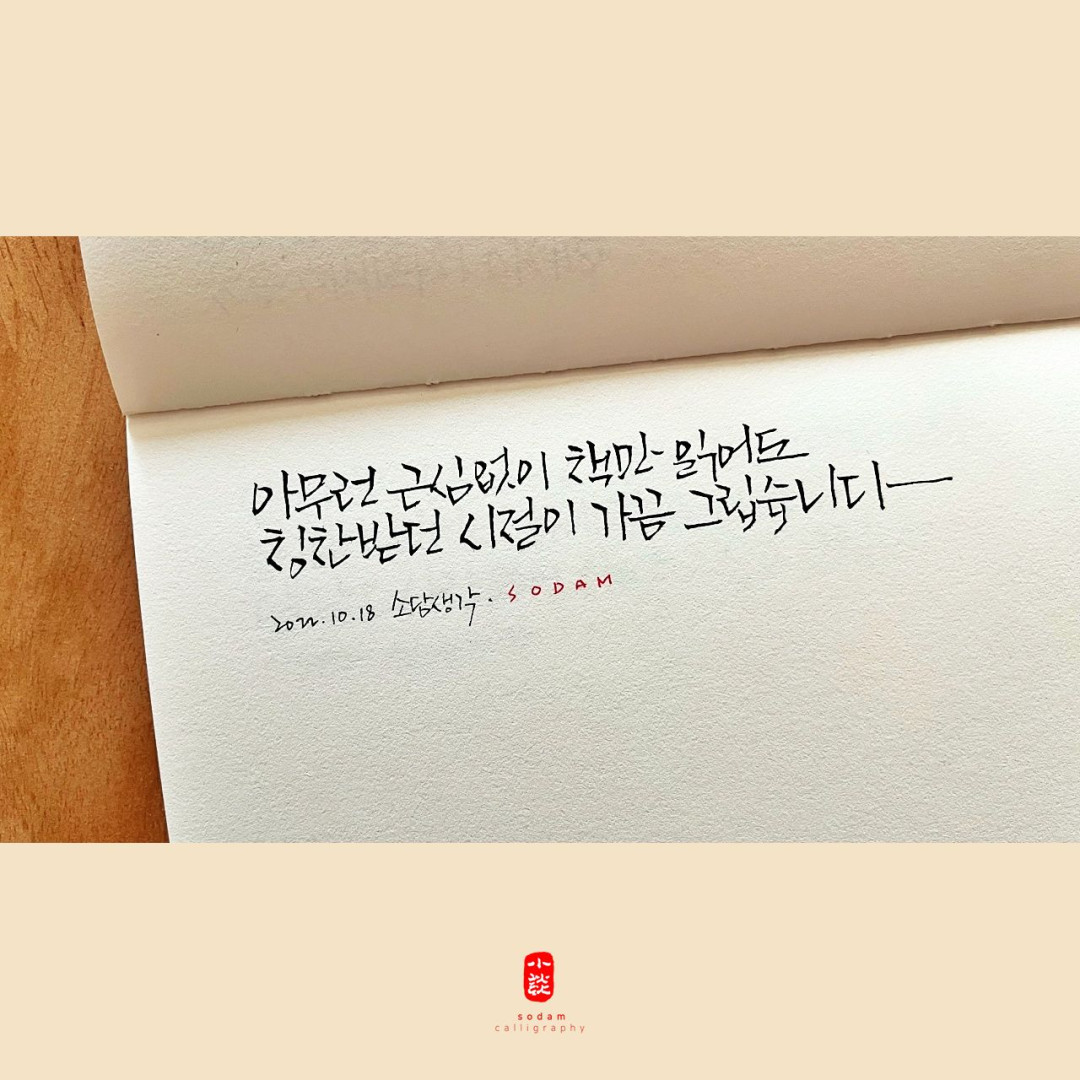 아무런 근심없이 책만 읽어도
칭찬받던 시절이 가끔 그립습니다
2022.10.18 소담생각. SODAM
小談
sodam
calligraphy